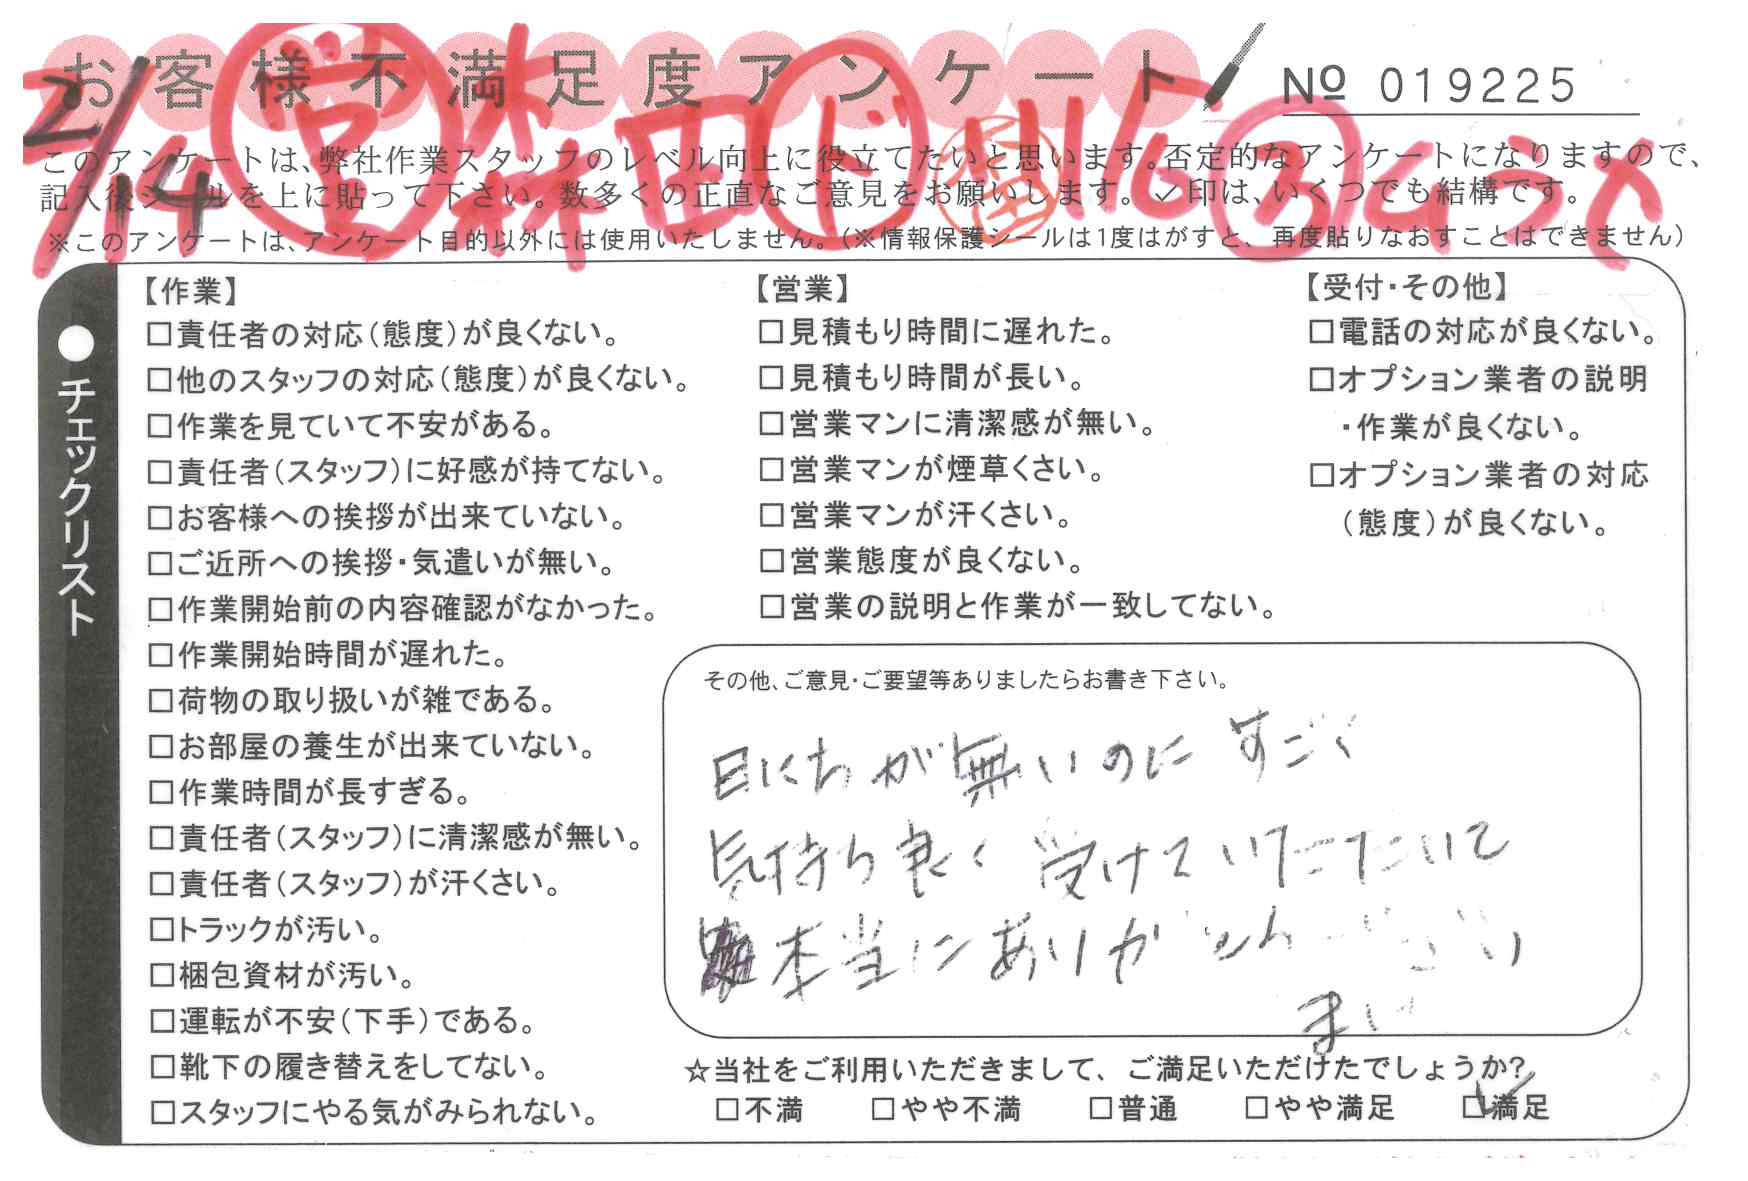 お客様不満足度アンケート
№ 019225
2/14 営 林田 ド 1116 ③
このアンケートは、弊社作業スタッフのレベル向上に役立てたいと思います。否定的なアンケートになりますので、
記入後シールを上に貼って下さい。数多くの正直なご意見をお願いします。✓印は、いくつでも結構です。
※このアンケートは、アンケート目的以外には使用いたしません。(※情報保護シールは1度はがすと、再度貼りなおすことはできません)
●チェックリスト
【作業】
□責任者の対応(態度)が良くない。
□他のスタッフの対応(態度)が良くない。
□作業を見ていて不安がある。
□責任者(スタッフ)に好感が持てない。
□お客様への挨拶が出来ていない。
□ご近所への挨拶・気遣いが無い。
□作業開始前の内容確認がなかった。
□作業開始時間が遅れた。
□荷物の取り扱いが雑である。
□お部屋の養生が出来ていない。
□作業時間が長すぎる。
□責任者(スタッフ)に清潔感が無い。
□責任者(スタッフ)が汗くさい。
□トラックが汚い。
□梱包資材が汚い。
□運転が不安(下手)である。
□靴下の履き替えをしてない。
□スタッフにやる気がみられない。
【営業】
□見積もり時間に遅れた。
□見積もり時間が長い。
□営業マンに清潔感が無い。
□営業マンが煙草くさい。
□営業マンが汗くさい。
□営業態度が良くない。
□営業の説明と作業が一致してない。
【受付・その他】
□電話の対応が良くない。
□オプション業者の説明
・作業が良くない。
□オプション業者の対応
(態度)が良くない。
その他、ご意見・ご要望等ありましたらお書き下さい。
日にちが無いのに すごく
気持ち良く 受けていただいて
本当にありがとうございい
まし
☆当社をご利用いただきまして、ご満足いただけたでしょうか?
□不満 □やや不満 □普通 □やや満足 ☑満足